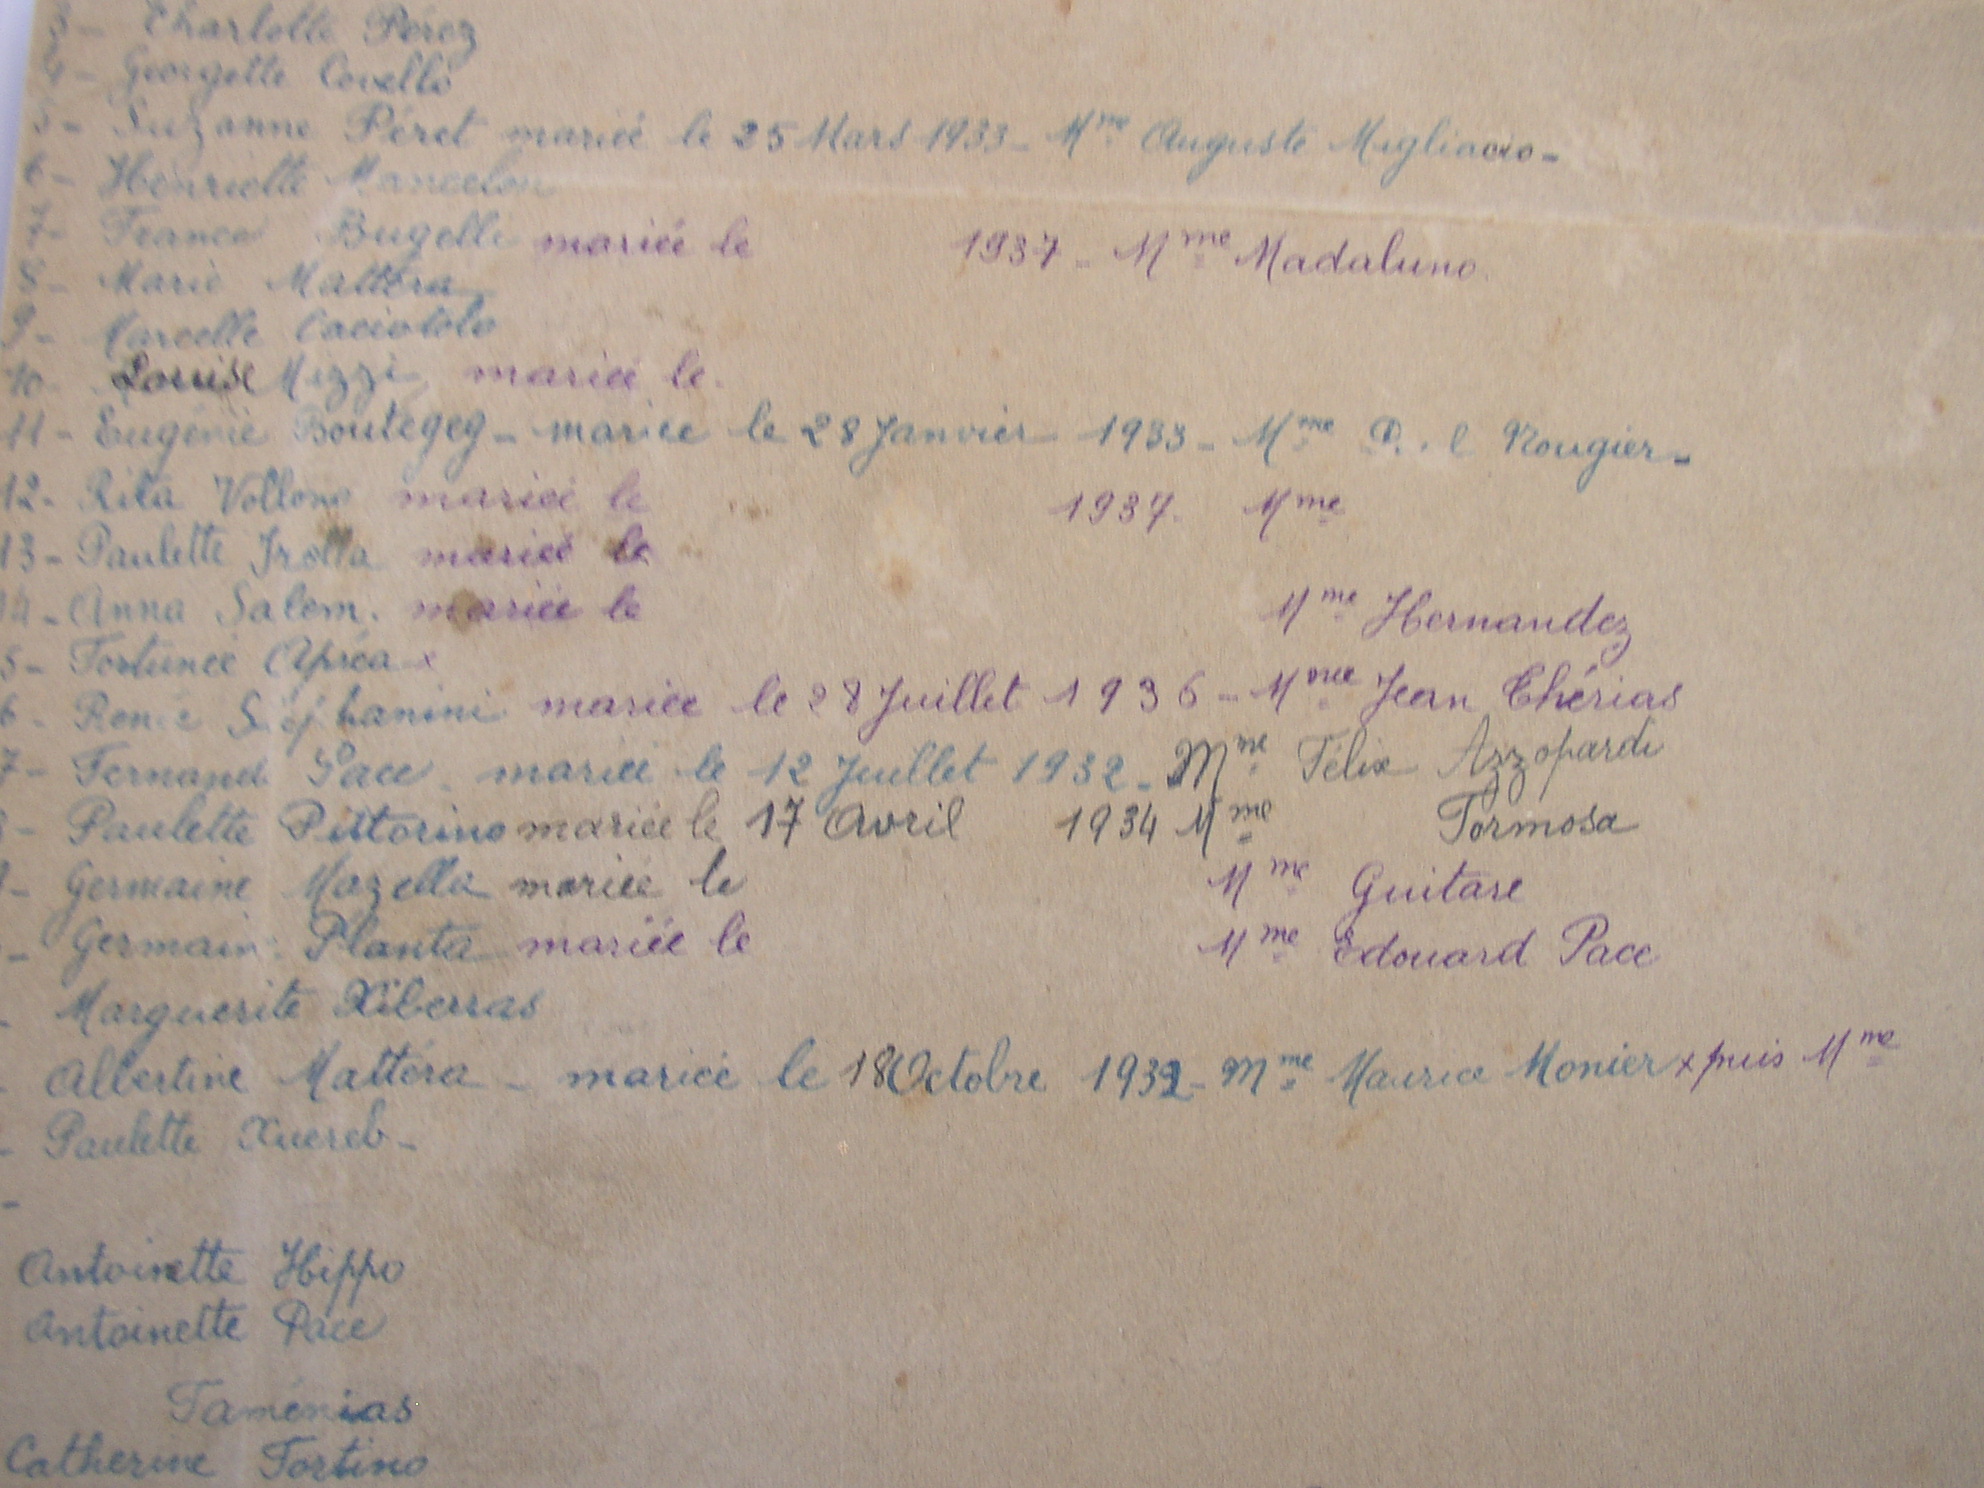 3- Charlotte Pérez
4- Georgette Covello
5- Suzanne Péret mariée le 25 Mars 1933- Mme Auguste Migliacio-
6- Henriette
7- France Bugelli mariée le 1937- Mme Madaluno
8- Marie Mattéra
9- Marcelle
10- Louise Mizzi mariée le
11- Eugénie Boutegeg- mariée le 28 Janvier 1933- Mme Rougier-
12- Rita Vollono mariée le 1937. Mme
13- Paulette Irolla mariée le
14- Anna Salem. mariée le Mme Hernandez
5- Fortunée Apréa x
6- Mariée le 28 Juillet 1936- Mme Jean Chérias
7- Fernand Pace. mariée le 12 Juillet 1932- Mme Félix Azzopardi
8- Paulette Pittorino mariée le 17 Avril 1934 Mme Tormosa
9- Germaine Mazella mariée le Mme Guitare
- Germain Planta mariée le Mme Edouard Pace
- Marguerite Xiberras
- Albertine Mattéra- mariée le 18 Octobre 1932- Mme Maurice Monier x puis Mme
- Paulette Xuereb-
-
Antoinette Hippo
Antoinette Pace
Taménias
Catherine Fortino